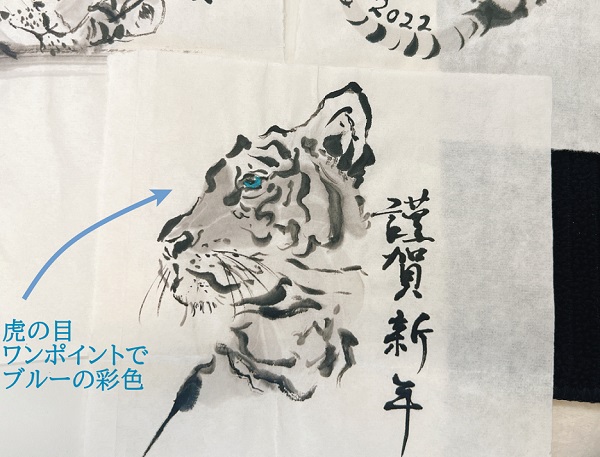 2022
謹賀新年
虎の目
ワンポイントで
ブルーの彩色